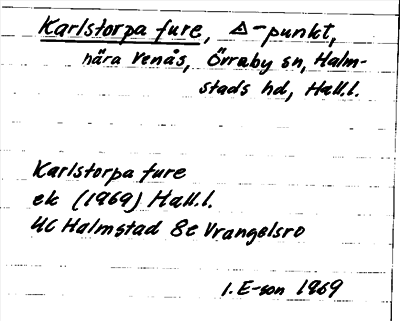 Karlstorpa fure, Δ-punkt,
nära Venås, Övraby sn, Halm-
stads hd, Hall.l.
Karlstorpa fure
ek (1969) Hall.l.
4C Halmstad 8e Vrangelsro
I. E-son 1969